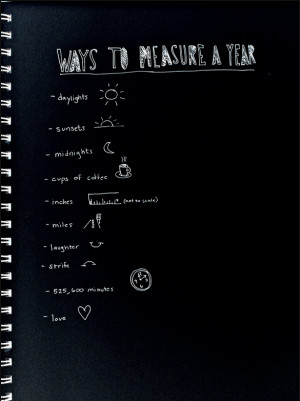 WAYS TO MEASURE A YEAR
- daylights
- sunsets
- midnights
- cups of coffee
- inches (not to scale)
- miles
- laughter
- strife
- 525,600 minutes
- love